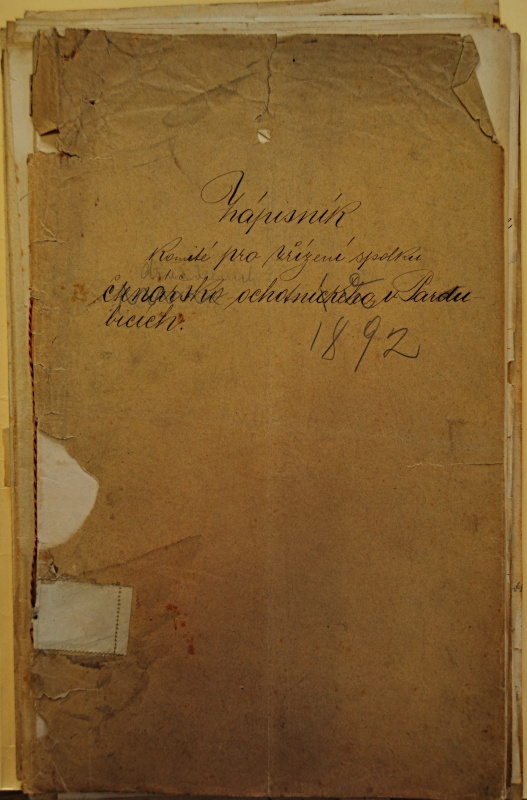 Zápisník
komité pro zřízení spolku
čtenářsko ochotnického v Pardu-
bicích.
1892